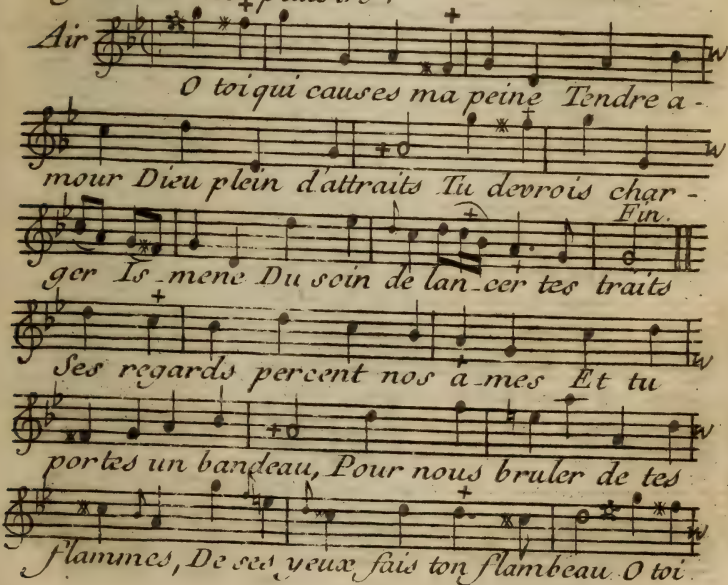 Air
O toi qui causes ma peine Tendre a-
mour Dieu plein d'attraits Tu devrois char-
Fin.
ger Is-mene Du soin de lan-cer tes traits
Ses regards percent nos a-mes Et tu
portes un bandeau, Pour nous bruler de tes
flammes, De ses yeux fais ton flambeau O toi